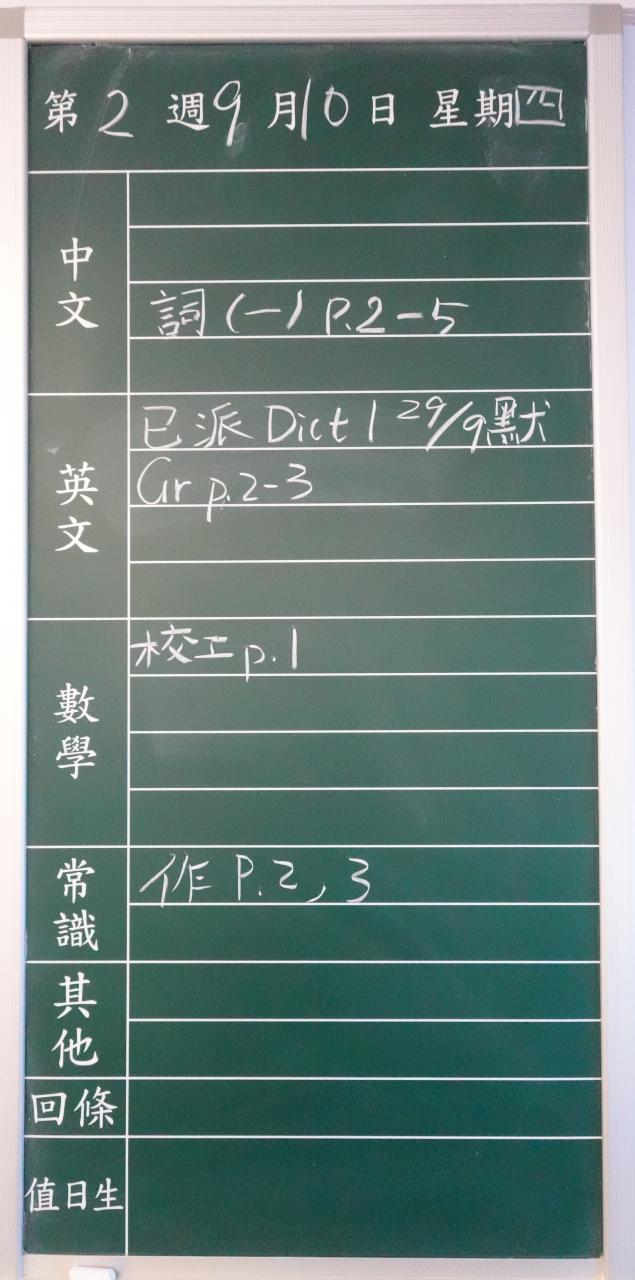 第 2 週 9 月 10 日 星期四
中文
詞(一) P.2-5
英文
已派 Dict 1 29/9默
Gr p.2-3
數學
校工 p.1
常識
作 P.2, 3
其他
回條
值日生